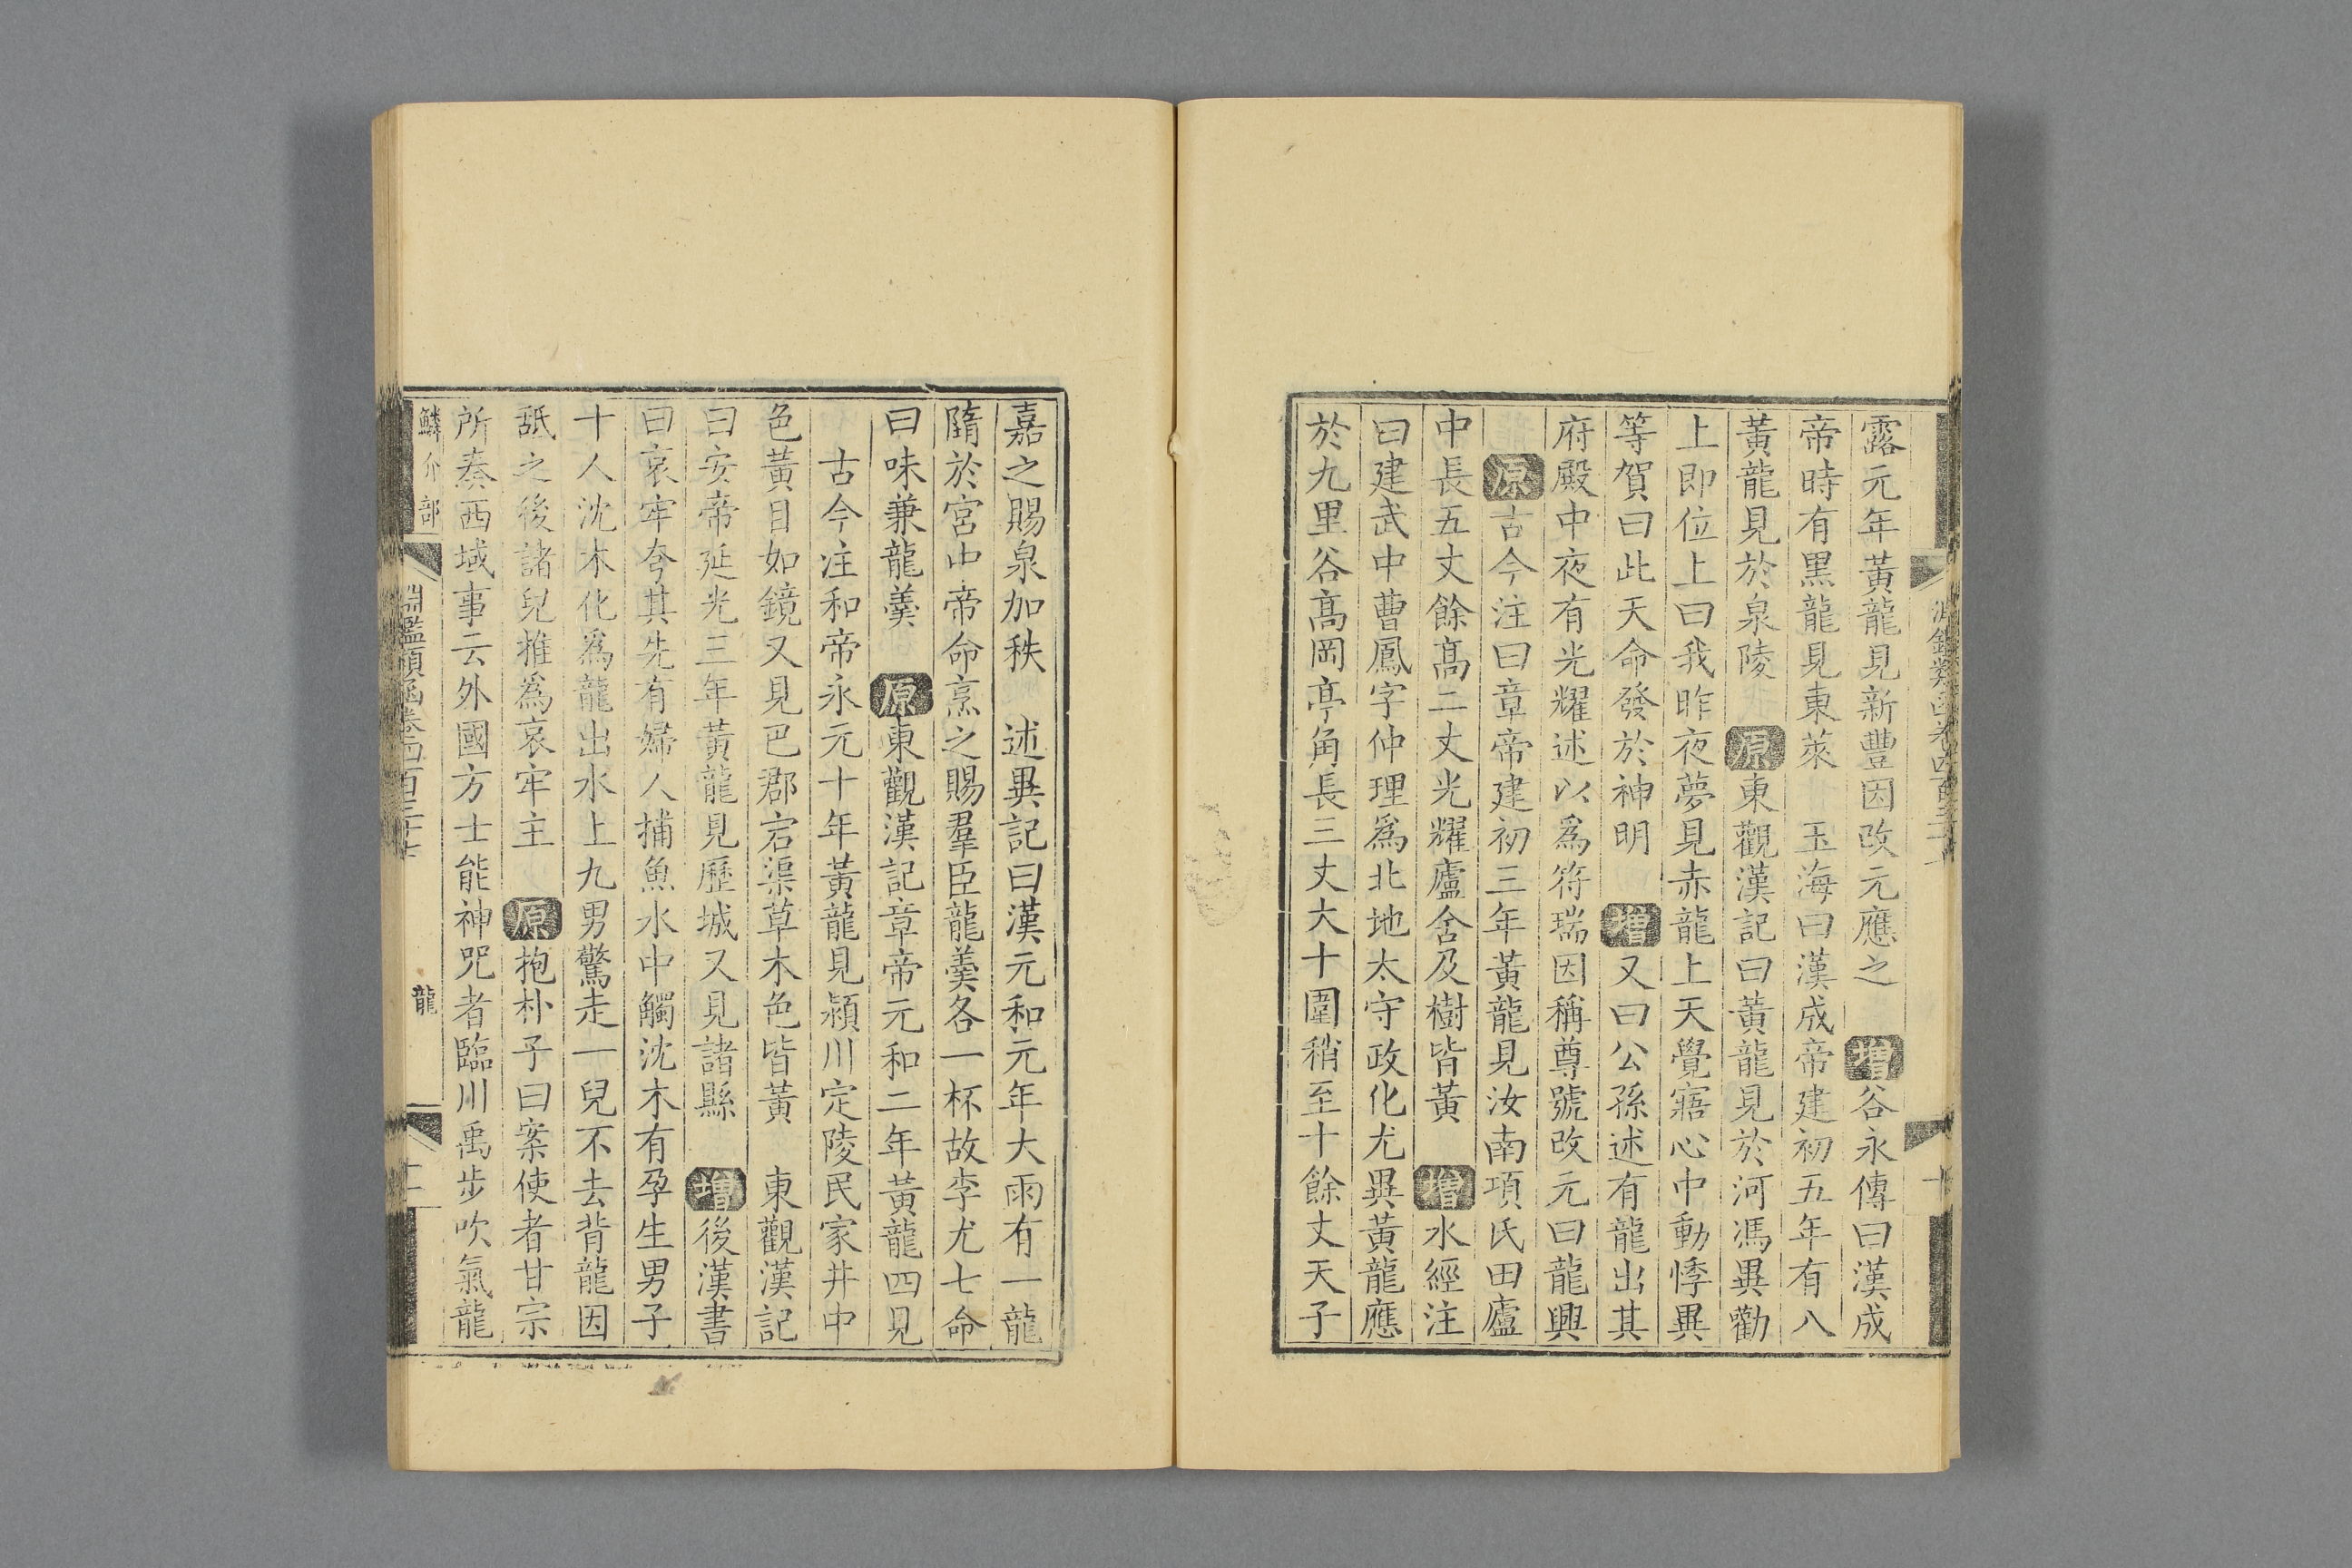 露元年黃龍見新豐因改元應之　增谷永傳曰漢成
帝時有黑龍見東萊　玉海曰漢成帝建初五年有八
黃龍見於泉陵　原東觀漢記曰黃龍見於河馮異勸
上即位上曰我昨夜夢見赤龍上天覺寤心中動悸異
等賀曰此天命發於神明　增又曰公孫述有龍出其
府殿中夜有光耀述以爲符瑞因稱尊號改元曰龍興
原古今注曰章帝建初三年黃龍見汝南項氏田廬
中長五丈餘髙二丈光耀廬舍及樹皆黃　增水經注
曰建武中曹鳳字仲理爲北地太守政化尤異黃龍應
於九里谷髙岡亭角長三丈大十圍稍至十餘丈天子
嘉之賜泉加秩　述異記曰漢元和元年大雨有一龍
隋於宮中帝命烹之賜羣臣龍羹各一杯故李尤七命
曰味兼龍羹　原東觀漢記章帝元和二年黃龍四見
古今注和帝永元十年黃龍見潁川定陵民家井中
色黃目如鏡又見巴郡宕渠草木色皆黃　東觀漢記
曰安帝延光三年黃龍見歷城又見諸縣　增後漢書
曰哀牢夸其先有婦人捕魚水中觸沈木有孕生男子
十人沈木化爲龍出水上九男驚走一兒不去背龍因
舐之後諸兒推爲哀牢主　原抱朴子曰案使者甘宗
所奏西域事云外國方士能神咒者臨川禹步吹氣龍
鱗介部
淵鑑類函卷四百三十七
龍
十一